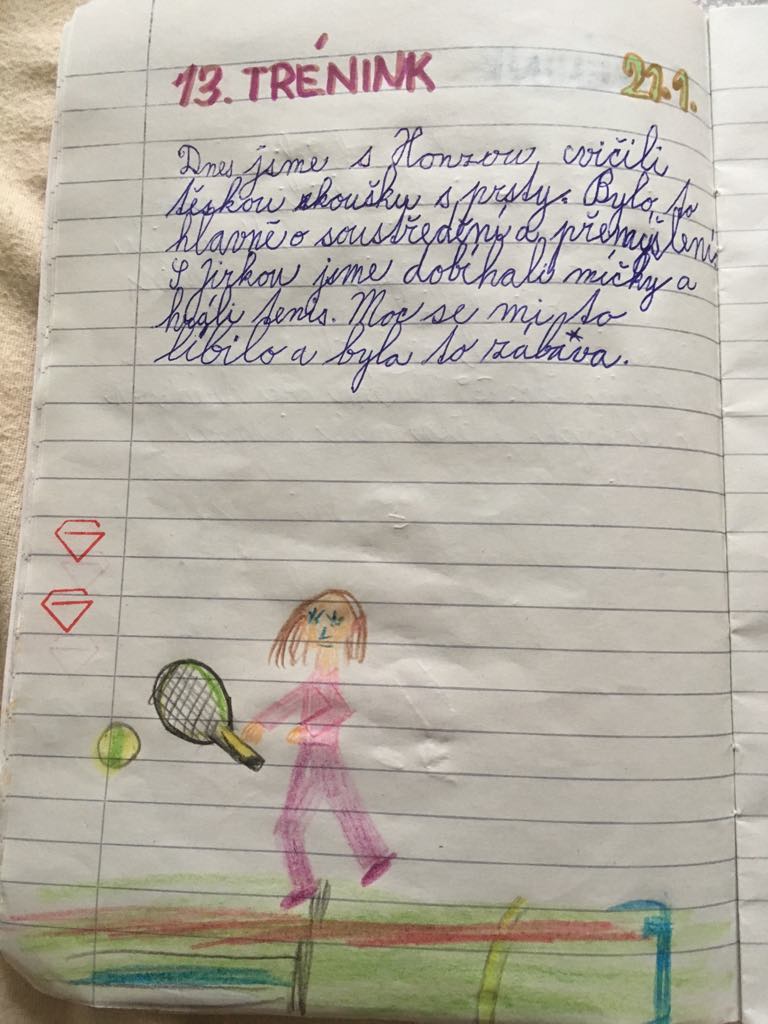 13. TRÉNINK 21.1.
Dnes jsme s Honzou cvičili
těškou zkoušku s prsty. Bylo to
hlavně o soustředění a přemýšlení.
S Jirkou jsme dobíhali míčky a
hráli tenis. Moc se mi to
líbilo a byla to zábava.